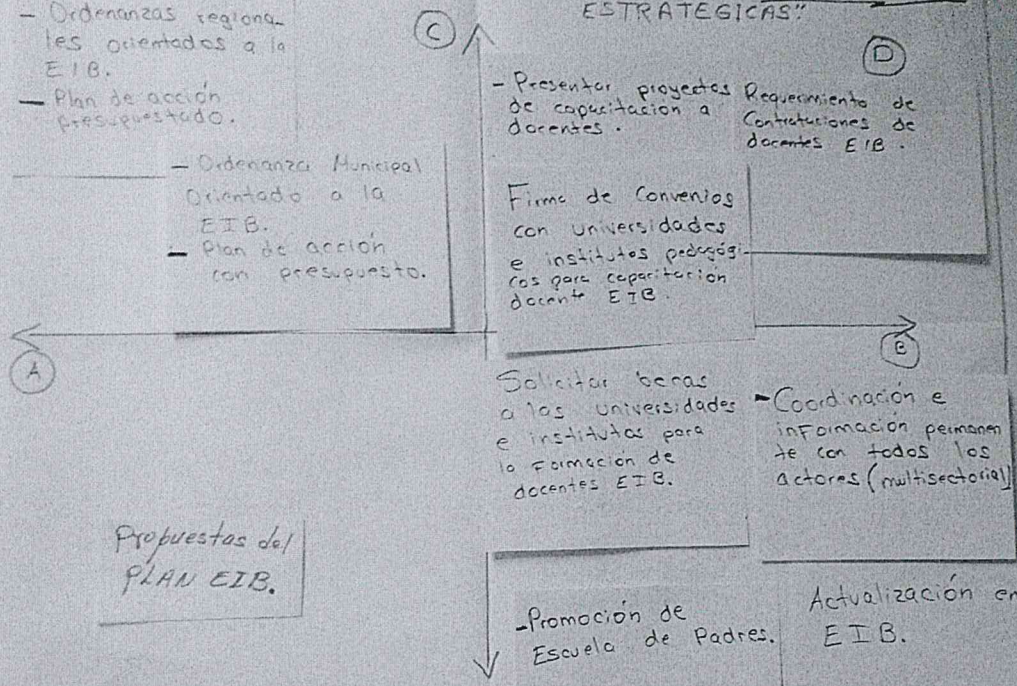 ESTRATEGICAS"
- Ordenanzas regiona-
les orientados a la
EIB.
- Plan de acción
presupuestado.
- Ordenanza Municipal
Orientado a la
EIB.
- Plan de acción
con presupuesto.
C
D
- Presentar proyectos
de capacitación a
docentes.
Requerimiento de
Contrataciones de
docentes EIB.
Firma de Convenios
con universidades
e institutos pedagógi-
cos para capacitación
docente EIB.
A
B
Solicitar becas
a las universidades
e institutos para
la formación de
docentes EIB.
- Coordinación e
información permanen
te con todos los
actores (multisectorial)
Propuestas del
PLAN EIB.
- Promoción de
Escuela de Padres.
Actualización en
EIB.